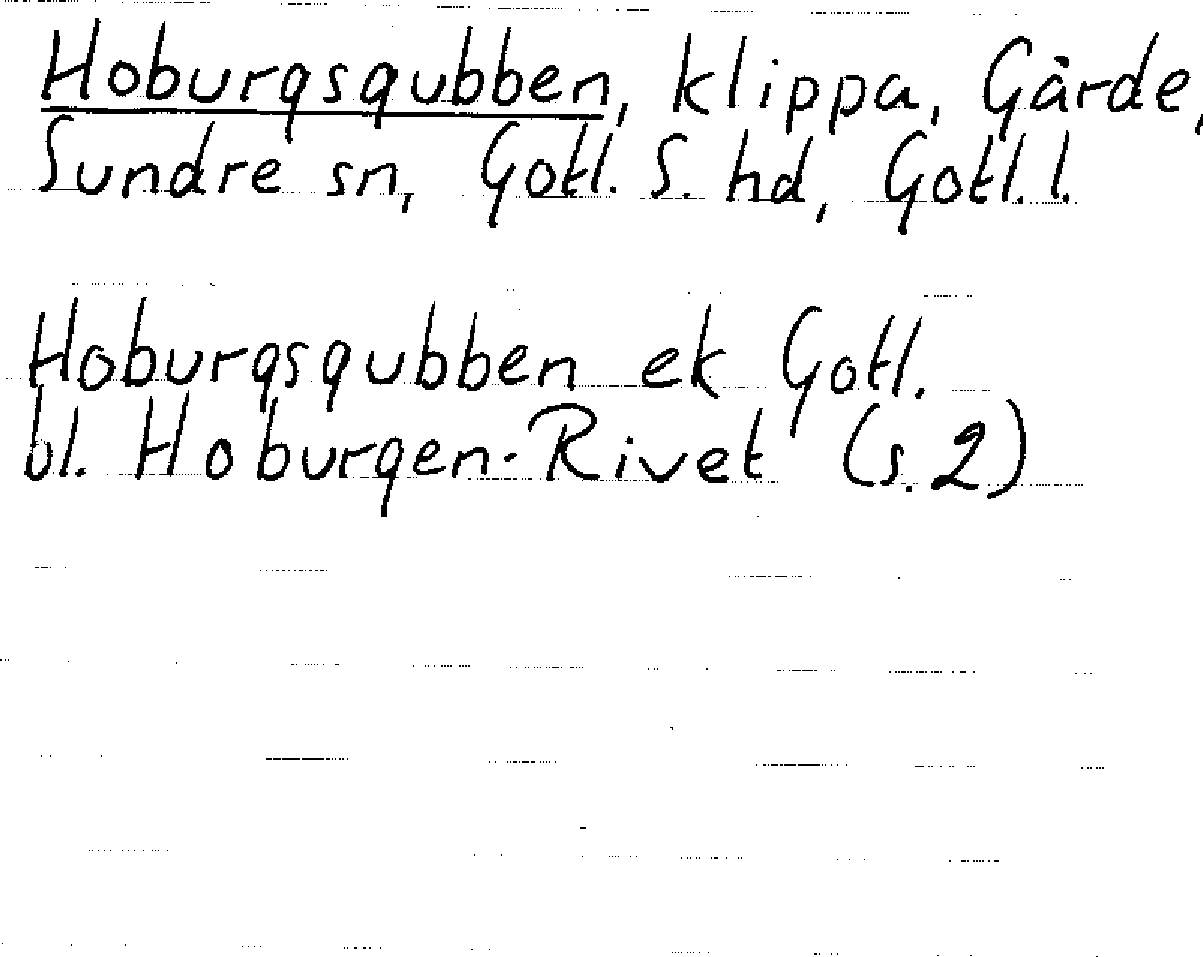 Hoburgsgubben, klippa, Gärde,
Sundre sn, Gotl. S. hd, Gotl. l.
Hoburgsgubben ek Gotl.
bl. Hoburgen-Rivet (s. 2)